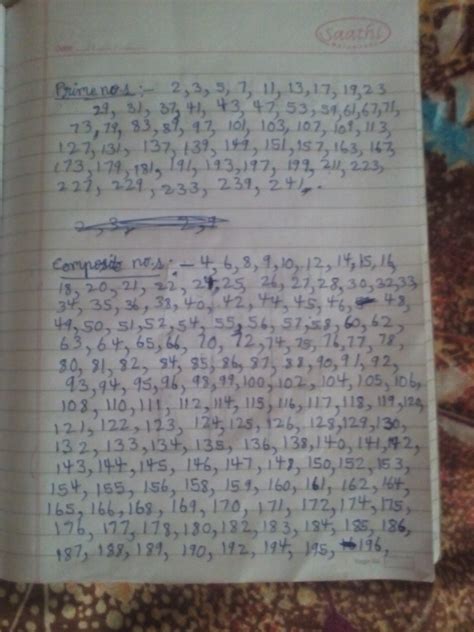 Saathi
Date
Prime nos :- 2, 3, 5, 7, 11, 13, 17, 19, 23
29, 31, 37, 41, 43, 47, 53, 59, 61, 67, 71,
73, 79, 83, 89, 97, 101, 103, 107, 109, 113,
127, 131, 137, 139, 149, 151, 157, 163, 167,
173, 179, 181, 191, 193, 197, 199, 211, 223,
227, 229, 233, 239, 241,.
Composit nos :- 4, 6, 8, 9, 10, 12, 14, 15, 16,
18, 20, 21, 22, 24, 25, 26, 27, 28, 30, 32, 33,
34, 35, 36, 38, 40, 42, 44, 45, 46, 48,
49, 50, 51, 52, 54, 55, 56, 57, 58, 60, 62,
63, 64, 65, 66, 70, 72, 74, 75, 76, 77, 78,
80, 81, 82, 84, 85, 86, 87, 88, 90, 91, 92,
93, 94, 95, 96, 98, 99, 100, 102, 104, 105, 106,
108, 110, 111, 112, 114, 115, 116, 117, 118, 119, 120,
121, 122, 123, 124, 125, 126, 128, 129, 130,
132, 133, 134, 135, 136, 138, 140, 141, 142,
143, 144, 145, 146, 147, 148, 150, 152, 153,
154, 155, 156, 158, 159, 160, 161, 162, 164,
165, 166, 168, 169, 170, 171, 172, 174, 175,
176, 177, 178, 180, 182, 183, 184, 185, 186,
187, 188, 189, 190, 192, 194, 195, 196,